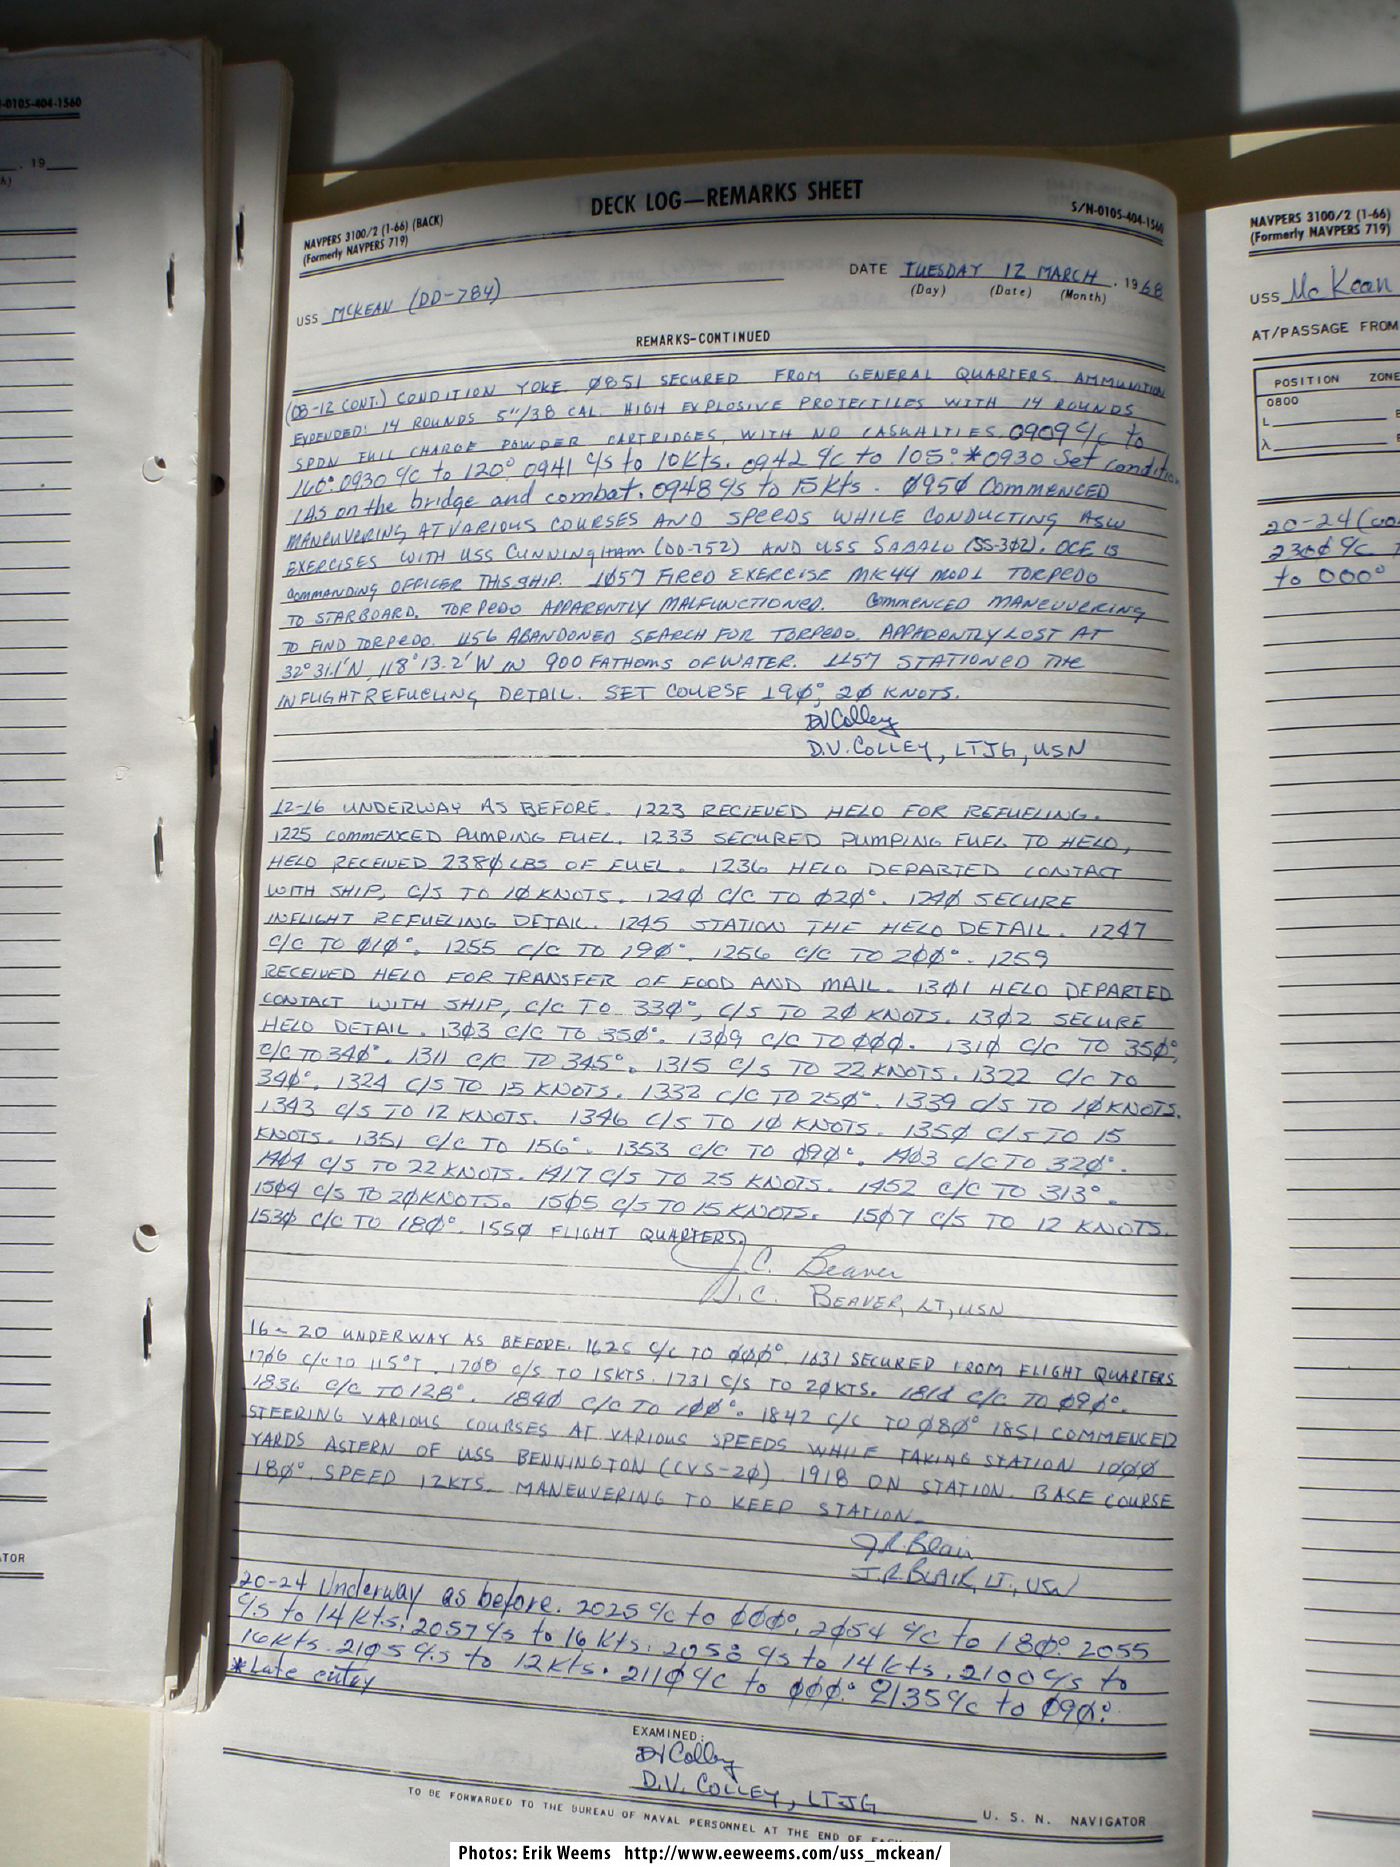 -0105-404-1560
, 19
h)
ATOR
DECK LOG—REMARKS SHEET
NAVPERS 3100/2 (1-66) (BACK)
(Formerly NAVPERS 719)
S/N-0105-404-1560
USS MCKEAN (DD-784)
DATE TUESDAY 12 MARCH, 1968
(Day) (Date) (Month)
REMARKS-CONTINUED
(08-12 CONT.) CONDITION YOKE. Ø851 SECURED FROM GENERAL QUARTERS. AMMUNITION
EXPENDED: 14 ROUNDS 5"/38 CAL HIGH EXPLOSIVE PROJECTILES WITH 14 ROUNDS
SPDN FULL CHARGE POWDER CARTRIDGES, WITH NO CASUALTIES. 0909 C/C to
160° 0930 C/C to 120° 0941 C/S to 10Kts. 0942 C/C to 105° *0930 Set condition
1AS on the bridge and combat. 0948 C/S to 15Kts. Ø95Ø COMMENCED
MANEUVERING AT VARIOUS COURSES AND SPEEDS WHILE CONDUCTING ASW
EXERCISES WITH USS CUNNINGHAM (DD-752) AND USS SABALO (SS-302). OCE IS
COMMANDING OFFICER THIS SHIP. 1Ø57 FIRED EXERCISE MK44 MOD1 TORPEDO
TO STARBOARD. TORPEDO APPARENTLY MALFUNCTIONED. COMMENCED MANEUVERING
TO FIND TORPEDO. 1156 ABANDONED SEARCH FOR TORPEDO. APPARENTLY LOST AT
32° 31.1'N, 118° 13.2'W IN 900 FATHOMS OF WATER. 1157 STATIONED THE
INFLIGHT REFUELING DETAIL. SET COURSE 19Ø°, 2Ø KNOTS.
DV Colley
D.V. COLLEY, LTJG, USN
12-16 UNDERWAY AS BEFORE. 1223 RECIEVED HELO FOR REFUELING.
1225 COMMENCED PUMPING FUEL. 1233 SECURED PUMPING FUEL TO HELO,
HELO RECEIVED 238Ø LBS OF FUEL. 1236 HELO DEPARTED CONTACT
WITH SHIP, C/S TO 1Ø KNOTS. 124Ø C/C TO Ø2Ø°. 124Ø SECURE
INFLIGHT REFUELING DETAIL. 1245 STATION THE HELO DETAIL. 1247
C/C TO Ø1Ø°. 1255 C/C TO 19Ø°. 1256 C/C TO 2ØØ°. 1259
RECEIVED HELO FOR TRANSFER OF FOOD AND MAIL. 13Ø1 HELO DEPARTED
CONTACT WITH SHIP, C/C TO 33Ø°, C/S TO 2Ø KNOTS. 13Ø2 SECURE
HELO DETAIL. 13Ø3 C/C TO 35Ø°. 13Ø9 C/C TO ØØØ. 131Ø C/C TO 35Ø°,
C/C TO 34Ø°. 1311 C/C TO 345°. 1315 C/S TO 22 KNOTS. 1322 C/C TO
34Ø°. 1324 C/S TO 15 KNOTS. 1332 C/C TO 25Ø°. 1339 C/S TO 1Ø KNOTS.
1343 C/S TO 12 KNOTS. 1346 C/S TO 1Ø KNOTS. 135Ø C/S TO 15
KNOTS. 1351 C/C TO 156°. 1353 C/C TO Ø9Ø°. 14Ø3 C/C TO 32Ø°.
14Ø4 C/S TO 22 KNOTS. 1417 C/S TO 25 KNOTS. 1452 C/C TO 313°.
15Ø4 C/S TO 2Ø KNOTS. 15Ø5 C/S TO 15 KNOTS. 15Ø7 C/S TO 12 KNOTS.
153Ø C/C TO 18Ø°. 155Ø FLIGHT QUARTERS.
J.C. Beaver
J.C. BEAVER, LT, USN
16-20 UNDERWAY AS BEFORE. 1625 C/C TO ØØØ°. 1631 SECURED FROM FLIGHT QUARTERS
17Ø6 C/C TO 115°T. 17Ø8 C/S TO 15KTS. 1731 C/S TO 2ØKTS. C/C TO Ø9Ø°.
1836 C/C TO 128°. 184Ø C/C TO 1ØØ°. 1842 C/C TO Ø8Ø° 1851 COMMENCED
STEERING VARIOUS COURSES AT VARIOUS SPEEDS WHILE TAKING STATION 1ØØØ
YARDS ASTERN OF USS BENNINGTON (CVS-2Ø) 1918 ON STATION. BASE COURSE
18Ø°. SPEED 12KTS. MANEUVERING TO KEEP STATION.
J.R. Blair
J.R. BLAIR, LT, USN
20-24 Underway as before. 2025 C/C to ØØØ°. 2Ø54 C/C to 18Ø° 2055
C/S to 14Kts. 2057 C/S to 16 Kts. 2058 C/S to 14Kts. 2100 C/S to
16Kts. 2105 C/S to 12Kts. 211Ø C/C to ØØØ° 2135 C/C to Ø9Ø°.
*Late entry
EXAMINED:
DV Colley
D.V. COLLEY, LTJG U. S. N. NAVIGATOR
TO BE FORWARDED TO THE BUREAU OF NAVAL PERSONNEL AT THE END OF
NAVPERS 3100/2 (1-66)
(Formerly NAVPERS 719)
USS McKean
AT/PASSAGE FROM
POSITION ZONE
0800
L
λ
20-24 (con
23ØØ C/C
to 000°
Photos: Erik Weems http://www.eeweems.com/uss_mckean/